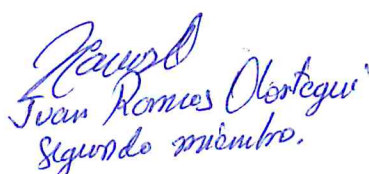 Juan Ramos Olortegui
Segundo miembro.